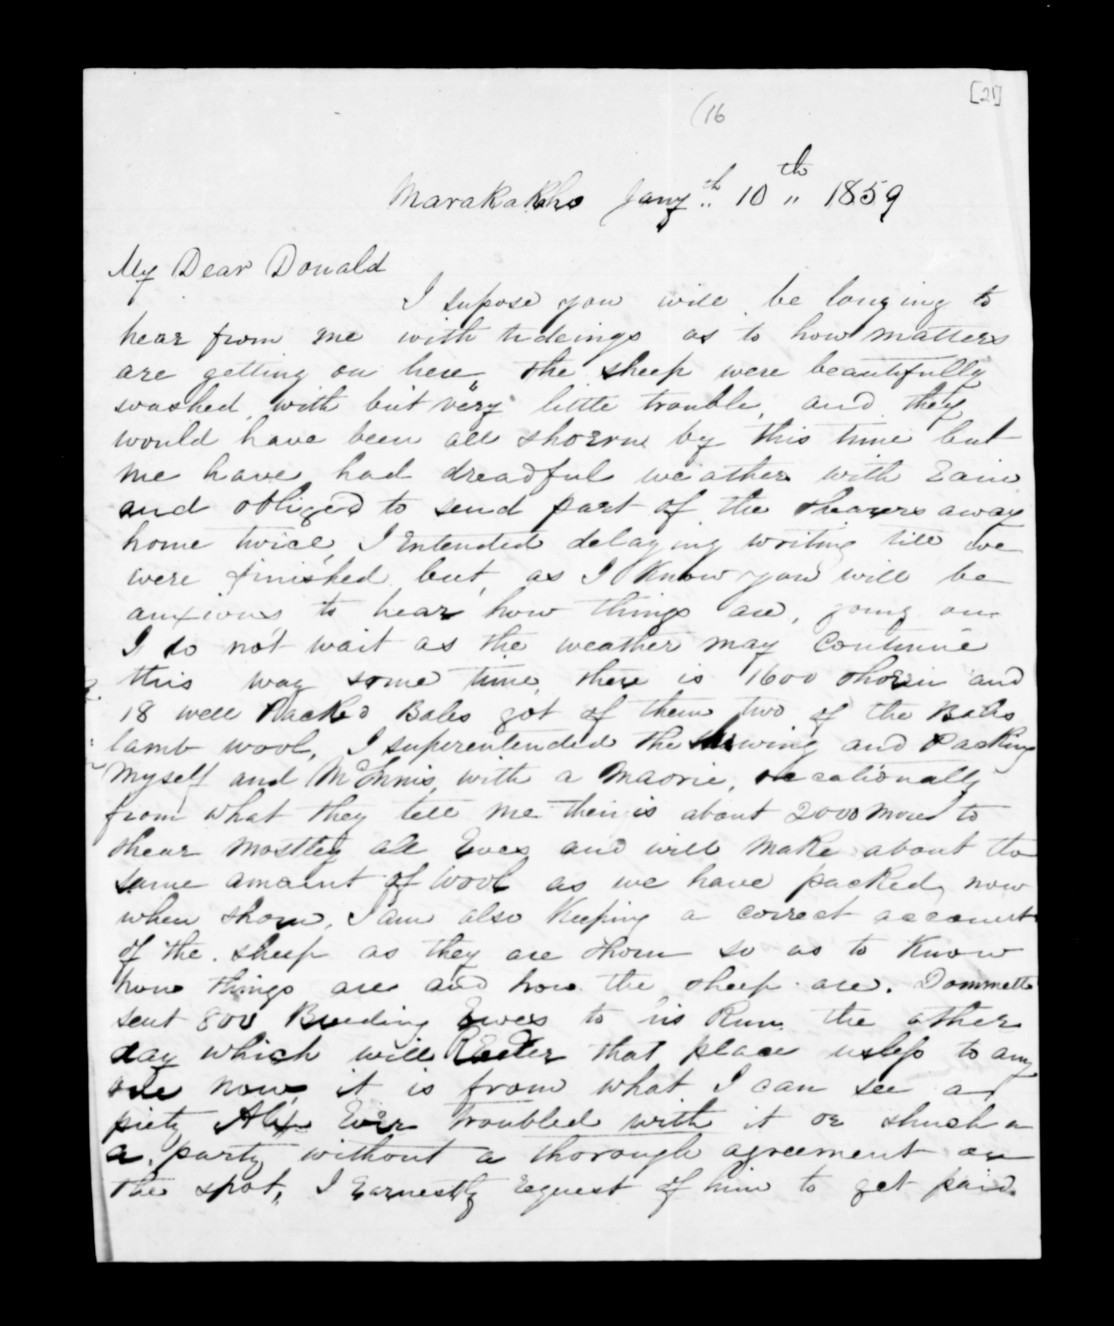 [21]
(16
Marakakho Jany.th 10th " 1859
My Dear Donald
I supose you will be longing to
hear from me with tideings as to how matters
are getting on here, the sheep were beautifully
washed with but very little trouble, and they
would have been all shorn by this time but
we have had dreadful weather with Rain
and obliged to send part of the shearers away
home twice, I Entended delaying writing till we
were finished but, as I know you will be
anxious to hear how things are, going on
I do not wait as the weather may continue
this way some time, there is 1600 shorn and
18 well Packed Bales got of them two of the Bales
lamb wool, I superentended the and Packing
myself and McInnis, with a Maorie, occationally
from what they tell me their is about 2000 more to
shear mostley all Ewes and will make about the
same amount of wool as we have packed, now
when shorn, I am also Keeping a correct account
of the sheep as they are shorn so as to Know
how things are and how the sheep are. Dommett
sent 800 Breeding Ewes to his Run the other
day which will Render that place usless to any
one now, it is from what I can see a
piety Alex Ever troubled with it or shuch a
a party without a thorough agreement on
the spot, I Earnestly request of him to get paid